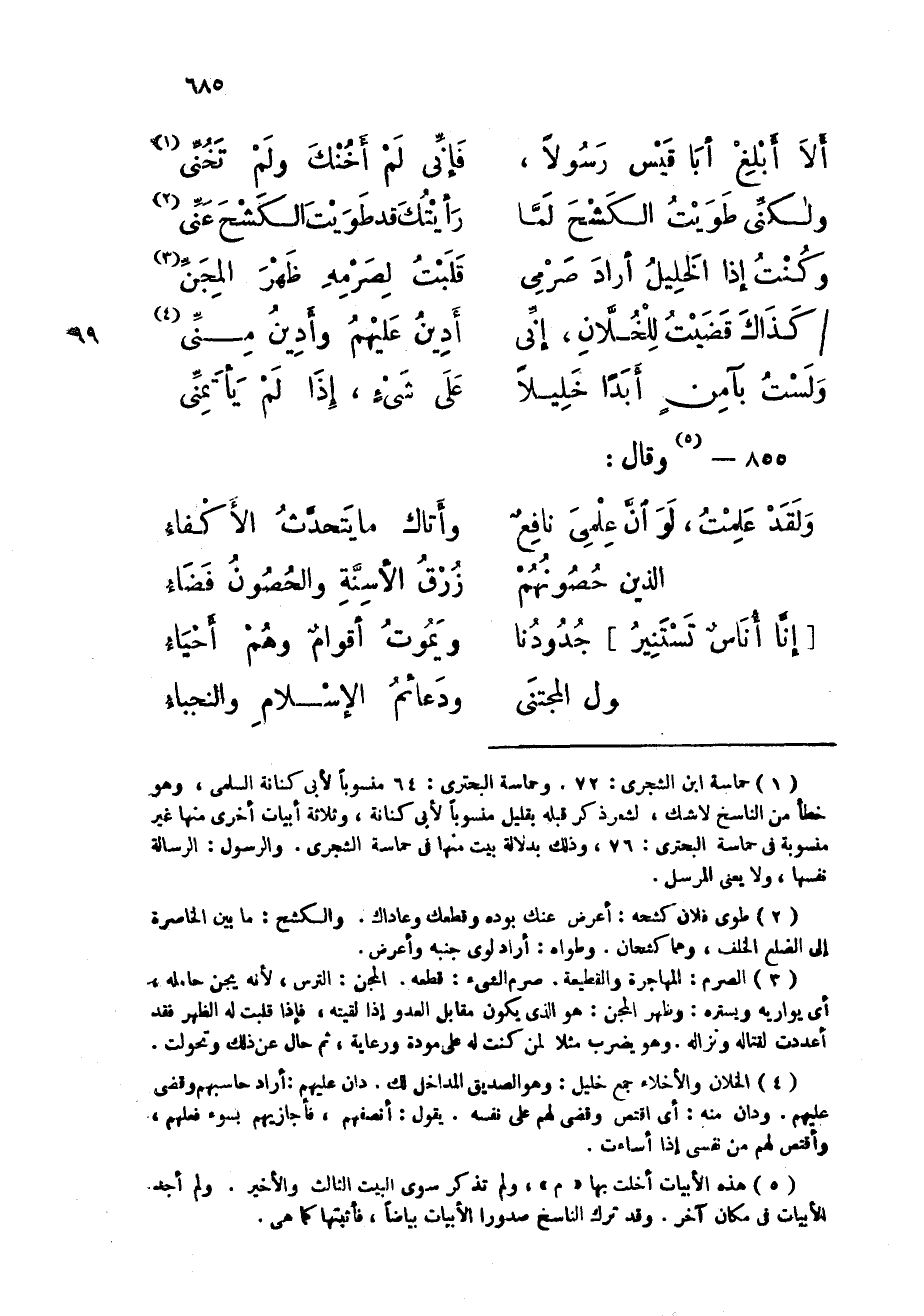 ٦٨٥
أَلاَ أَبْلِغْ أبَا قَيْسٍ رَسُولاً ، فَإنِّى لَمْ أَخُنْكَ ولَمْ تَخُنِّى (١)
ولٰكنِّى طَوَيْتُ الكَشْحَ لَمَّا رَأَيْتُكَ قد طَوَيْتَ الكَشْحَ عَنِّى (٢)
وكُنْتُ إذا الخَلِيلُ أرادَ صَرْمِى قَلَبْتُ لِصَرْمِهِ ظَهْرَ المِجَنِّ (٣)
/ كَذَاكَ قَضَيْتُ لِلْخُلَّانِ ، إنِّى أَدِينُ عَلَيْهِمُ وأَدِينُ مِنِّى (٤) ٩٩
وَلَسْتُ بآمِنٍ أَبَدًا خَلِيلاً عَلَى شَىْءٍ ، إِذَا لَمْ يَأْتَمِنِّى
٨٥٥ — (٥) وقال :
وَلَقَدْ عَلِمْتُ ، لَوَ ٱنَّ عِلْمِىَ نافِعٌ وأَتاكَ ما يَتَحدَّثُ الأَكْفاءِ
الذين حُصُونُهُمْ زُرْقُ الأسِنَّةِ والحُصُونُ فَضَاءِ
[ إنَّا أُنَاسٌ تَسْتَنِيرُ ] جُدُودُنا ويَمُوتُ أقوامٌ وهُمْ أَحْيَاءِ
ول المجتنَى ودَعائمُ الإسْلامِ والنجباءِ
( ١ ) حماسة ابن الشجرى : ٧٢ . وحماسة البحترى : ٦٤ منسوباً لأبى كنانة السلمى ، وهو
خطأ من الناسخ لاشك ، لشعر ذكر قبله بقليل منسوباً لأبى كنانة ، وثلاثة أبيات أخرى منها غير
منسوبة فى حماسة البحترى : ٧٦ ، وذلك بدلالة بيت منها فى حماسة الشجرى . والرسول : الرسالة
نفسها ، ولا يعنى المرسل .
( ٢ ) طوى فلان كشحه : أعرض عنك بوده وقطعك وعاداك . والكشح : ما بين الخاصرة
إلى الضلع الخلف ، وهما كشحان . وطواه : أراد لوى جنبه وأعرض .
( ٣ ) الصرم : المهاجرة والقطيعة . صرم الشىء : قطعه . المجن : الترس ، لأنه يجن حامله ،
أى يواريه ويستره : وظهر المجن : هو الذى يكون مقابل العدو إذا لقيته ، فإذا قلبت له الظهر فقد
أعددت لقتاله ونزاله . وهو يضرب مثلا لمن كنت له على مودة ورعاية ، ثم حال عن ذلك وتحولت .
( ٤ ) الخلان والأخلاء جمع خليل : وهو الصديق المداخل لك . دان عليهم : أراد حاسبهم وقضى
عليهم . ودان منه : أى اقتص وقضى لهم على نفسه . يقول : أنصفهم ، فأجازيهم بسوء فعلهم ،
وأقتص لهم من نفسى إذا أساءت .
( ٥ ) هذه الأبيات أخلت بها « م » ، ولم تذكر سوى البيت الثالث والأخير . ولم أجد
للأبيات فى مكان آخر . وقد ترك الناسخ صدورا الأبيات بياضاً ، فأثبتها كما هى .